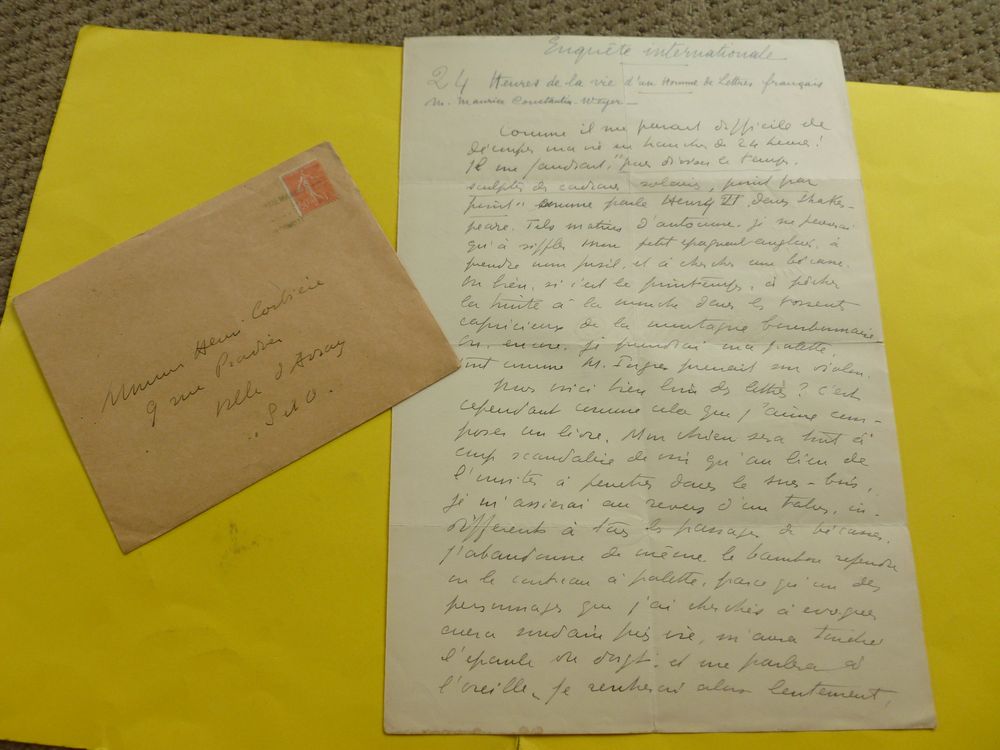 Enquête internationale
24 Heures de la vie d'un Homme de Lettres français
M. Maurice Constantin-Weyer -
Comme il me parait difficile de
découper ma vie en tranches de 24 heures!
Il me faudrait, "pour diviser le temps,
sculpter des cadrans solaires, point par
point" comme parle Henry VI dans Shakes-
peare. Tels matins d'automne, je ne penserai
qu'à siffler mon petit epagneul anglais, à
prendre mon fusil, et à chercher une bécasse.
Ou bien, si c'est le printemps, à pêcher
la truite à la mouche dans les torrents
capricieux de la montagne bourbonnaise.
Ou, encore, je prendrai ma palette,
tout comme M. Ingres prenait son violon.
Mais voici bien loin des lettres? C'est
cependant comme cela que j'aime com-
poser un livre. Mon chien sera tout à
coup scandalisé de voir qu'au lieu de
l'inviter à pénétrer dans le sous-bois,
je m'assierai au revers d'un talus, in-
différent à tous les passages de bécasses.
J'abandonne de même le bambou refendu
ou le couteau à palette, parce qu'un des
personnages que j'ai cherchés à evoquer
aura soudain pris vie, m'aura touché
l'épaule du doigt, et me parlera à
l'oreille. Je rentrerai alors lentement,
Monsieur Henri Corbière
9 rue Pradier
Ville d'Avray
S et O.